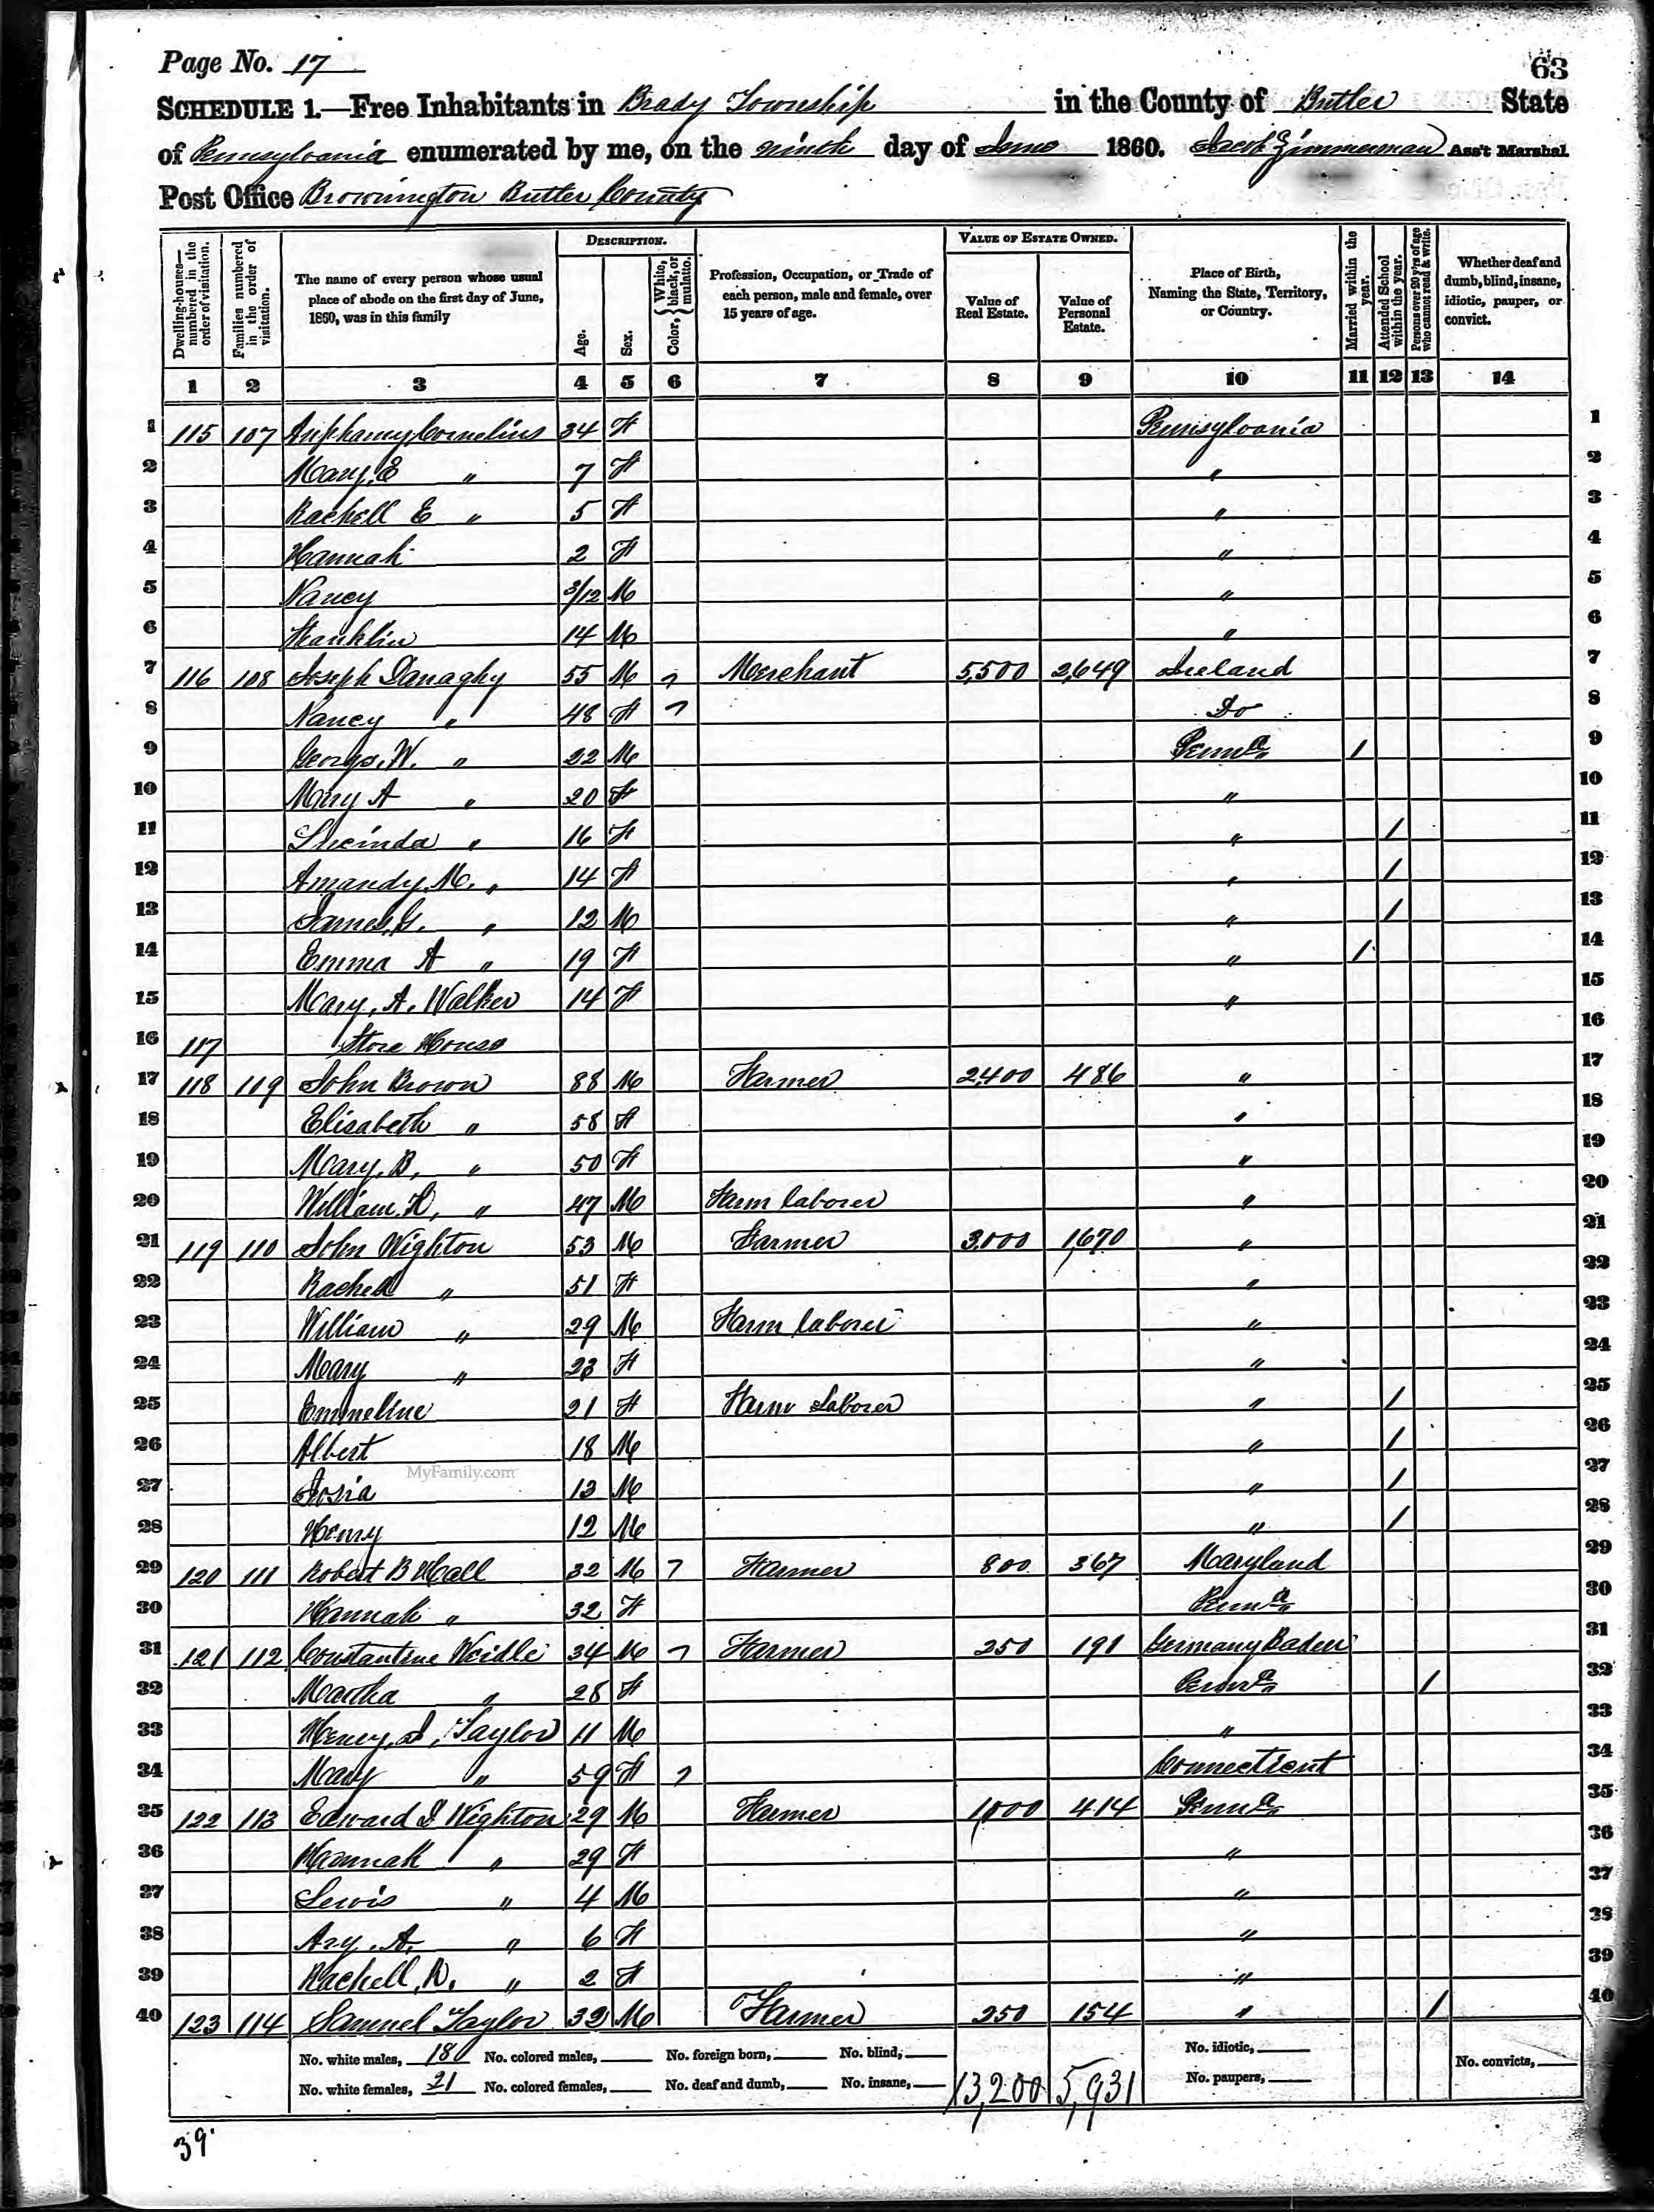 Page No. 17
63
SCHEDULE 1.—Free Inhabitants in Brady Township in the County of Butler State
of Pennsylvania enumerated by me, on the ninth day of June 1860. Jacob Zimmerman Ass't Marshal
Post Office Brownington Butler County
Dwelling-houses—numbered in the order of visitation. Families numbered in the order of visitation. The name of every person whose usual place of abode on the first day of June, 1860, was in this family DESCRIPTION. Age. Sex. Color, { White, black, or mulatto. Profession, Occupation, or Trade of each person, male and female, over 15 years of age. VALUE OF ESTATE OWNED. Value of Real Estate. Value of Personal Estate. Place of Birth, Naming the State, Territory, or Country. Married within the year. Attended School within the year. Persons over 20 y'rs of age who cannot read & write. Whether deaf and dumb, blind, insane, idiotic, pauper, or convict.
1 2 3 4 5 6 7 8 9 10 11 12 13 14
1 115 107 Cornelius 34 F Pennsylvania 1
2 Mary, E " 7 F " 2
3 Rachell E " 5 F " 3
4 Hannah 2 F " 4
5 Nancy 3/12 M " 5
6 Franklin 14 M " 6
7 116 108 Joseph Danaghy 55 M 7 Merchant 5,500 2,649 Ireland 7
8 Nancy " 48 F 7 Do 8
9 George, W. " 22 M Penna 1 9
10 Mary A " 20 F " 10
11 Lucinda " 16 F " 1 11
12 Amandy, M. " 14 F " 1 12
13 James, G. " 12 M " 1 13
14 Emma A " 19 F " 1 14
15 Mary, A. Walker 14 F " 15
16 117 Store House 16
17 118 119 John Brown 88 M Farmer 2400 486 " 17
18 Elisabeth " 58 F " 18
19 Mary, B, " 50 F " 19
20 William, H, " 47 M Farm laborer " 20
21 119 110 John Wighton 53 M Farmer 3,000 1,670 " 21
22 Rachell " 51 F " 22
23 William " 29 M Farm laborer " 23
24 Mary " 23 F " 24
25 Emmeline 21 F Farm Laborer " 1 25
26 Albert 18 M " 1 26
27 Josia 13 M " 1 27
28 Henry 12 M " 1 28
29 120 111 Robert B Hall 32 M 7 Farmer 800 367 Maryland 29
30 Hannah " 32 F Penna 30
31 121 112 Constantine Weidle 34 M 7 Farmer 250 191 Germany Baden 31
32 Martha " 28 F Penna 1 32
33 Henry, J, Taylor 11 M " 33
34 Mary " 59 F 7 Connecticut 34
35 122 113 Edward S Wighton 29 M Farmer 1,000 414 Penna 35
36 Hannah " 29 F " 36
37 Lewis " 4 M " 37
38 Ary, A. " 6 F " 38
39 Rachell, N. " 2 F " 39
40 123 114 Samuel Taylor 39 M Farmer 250 154 " 1 40
MyFamily.com
No. white males, 18 No. colored males, No. foreign born, No. blind, No. idiotic, No. convicts,
No. white females, 21 No. colored females, No. deaf and dumb, No. insane, 13,200 5,931 No. paupers,
39